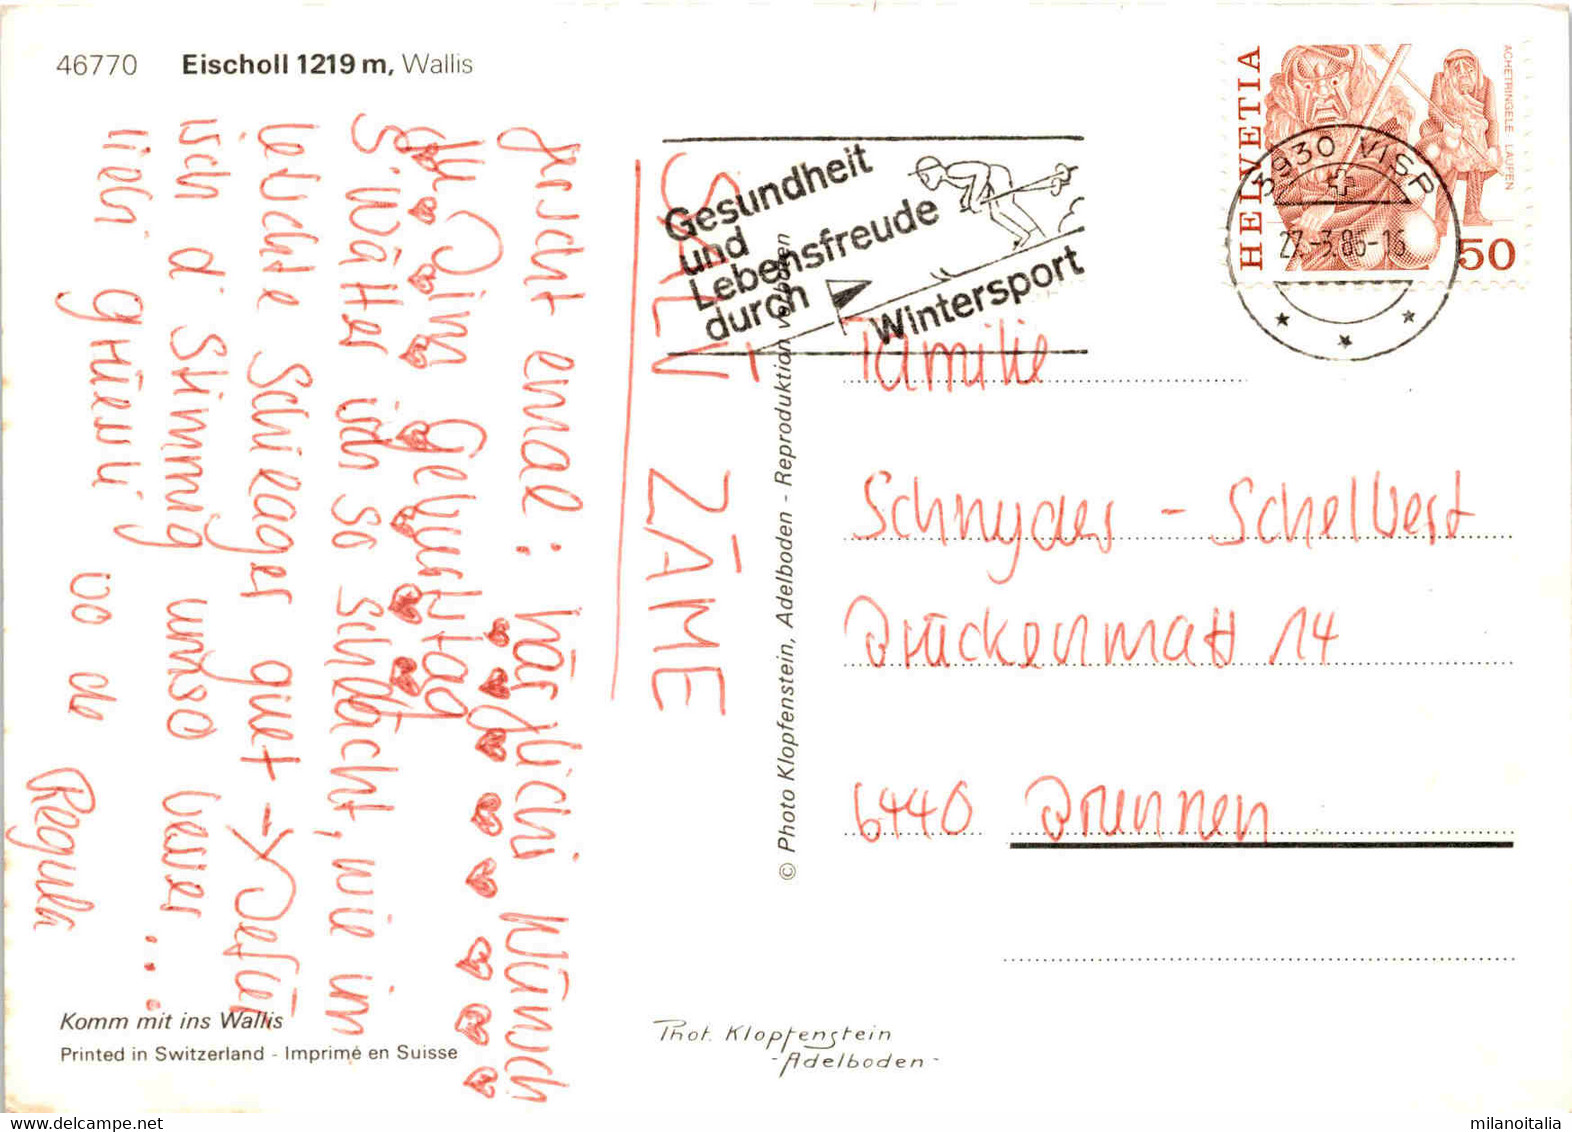 46770 Eischoll 1219 m, Wallis
SALÜ ZÄME
Jerscht emal: härzlichi Wünsch
zum Geburtstag
S'Wätter isch so schlächt, wie im
letschte Schilager guet → Defür
isch d'Stimmig umso besser...
vieli grüessli
vo de
Regula
Komm mit ins Wallis
Printed in Switzerland - Imprimé en Suisse
© Photo Klopfenstein, Adelboden - Reproduktion verboten
Phot. Klopfenstein
- Adelboden -
Gesundheit
und
Lebensfreude
durch
Wintersport
3930 VISP
HELVETIA
ACHETRINGELE LAUPEN
50
Familie
Schnyder - Schelbert
Brückenmatt 14
6440 Brunnen
milanoitalia